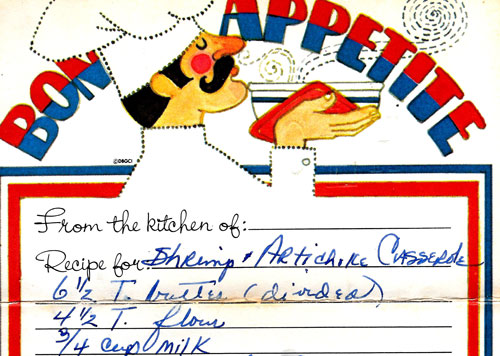 BON APPETITE
©DBGCI
From the kitchen of:
Recipe for: Shrimp & Artichoke Casserole
6 1/2 T. butter (divided)
4 1/2 T. flour
3/4 cup milk